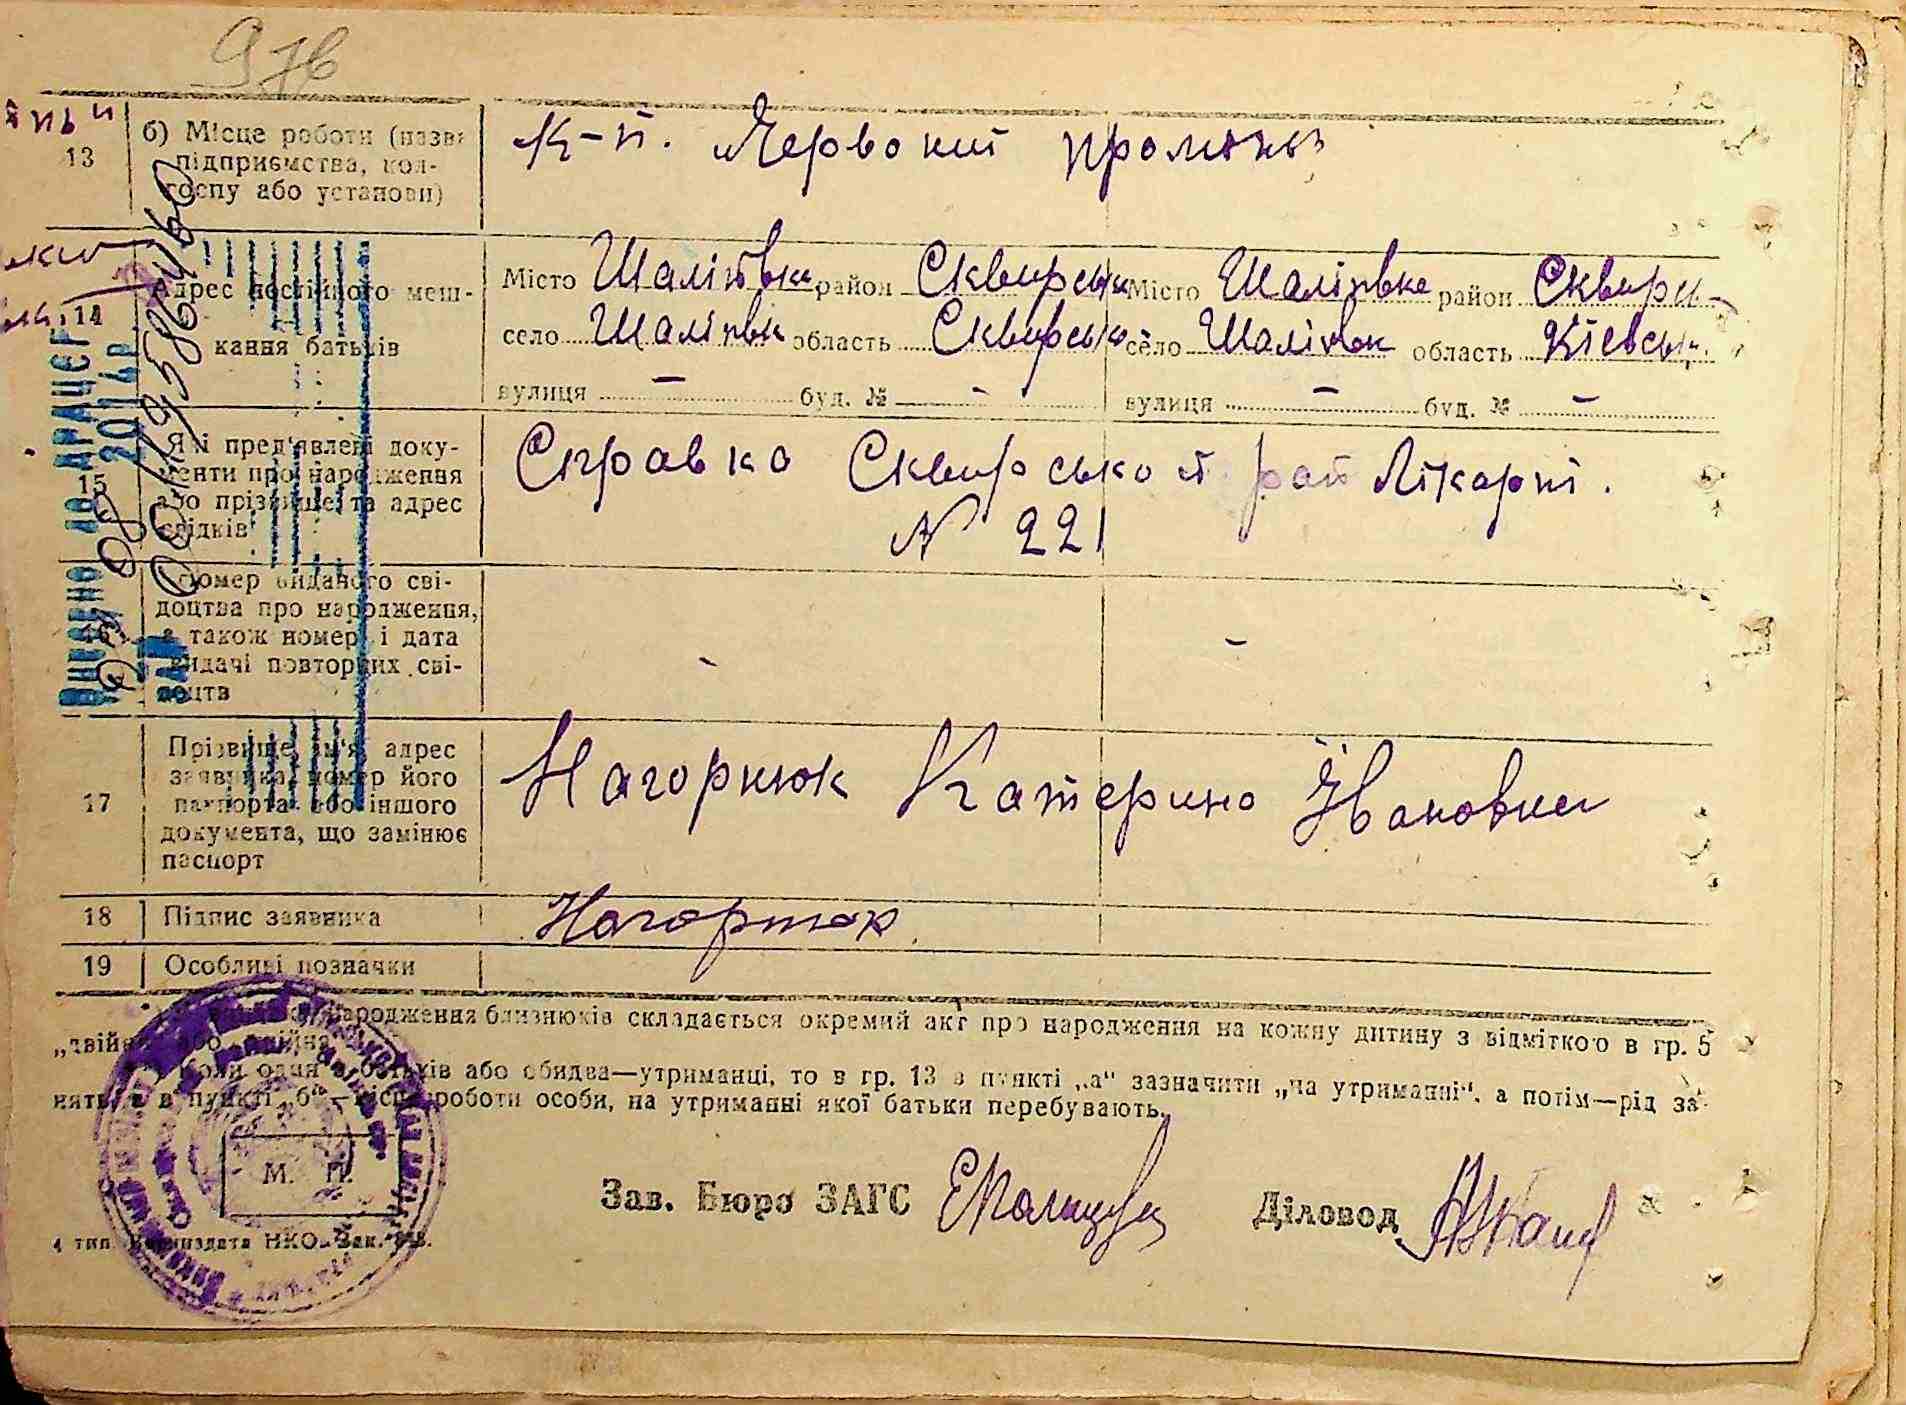 97б
13
б) Місце роботи (назва
підприємства, кол-
госпу або установи)
К-п. Червоний промінь
14
Адрес постійного меш-
кання батьків
Місто Шаліївка район Сквирськ Місто Шаліївка район Сквирсь-
село Шаліївк область Сквирсько село Шаліївк область Київськ.
вулиця – буд. № - вулиця – буд. № –
15
Які пред'явлені доку-
менти про народження
або прізвище та адрес
свідків
Справка Сквирської рай Лікарні.
№ 221
16
Номер виданого сві-
доцтва про народження,
а також номер і дата
видачі повторних сві-
доцтв
- -
17
Прізвище, ім'я, адрес
заявника, номер його
паспорта або іншого
документа, що замінює
паспорт
Нагорнюк Катерина Івановна
18 Підпис заявника
Нагорнюк
19 Особливі позначки
народження близнюків складається окремий акт про народження на кожну дитину з відміткою в гр. 5
„двійня" або
Коли один з батьків або обидва—утриманці, то в гр. 13 в пункті „а" зазначити „на утриманні", а потім—рід за-
няття, а в пункті „б"—місце роботи особи, на утриманні якої батьки перебувають.
М. П.
Зав. Бюро ЗАГС
Діловод
Видано по АРАЦСГ
2014р